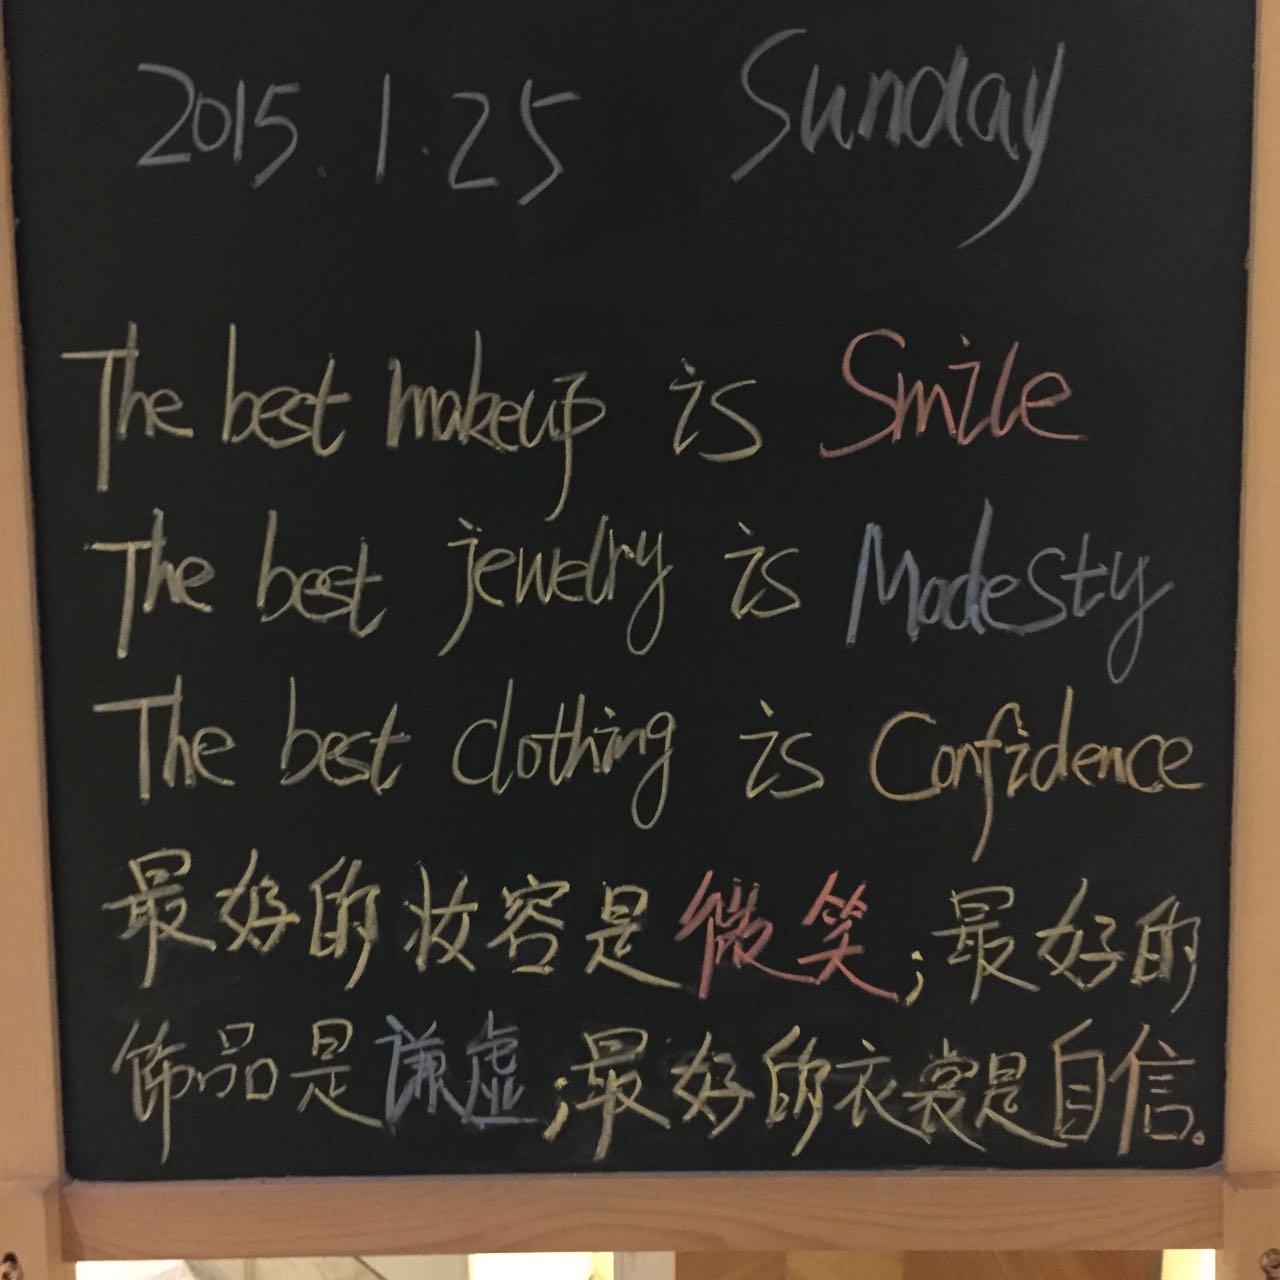 2015.1.25 Sunday
The best makeup is Smile
The best jewelry is Modesty
The best clothing is Confidence
最好的妆容是微笑;最好的
饰品是谦虚;最好的衣裳是自信。